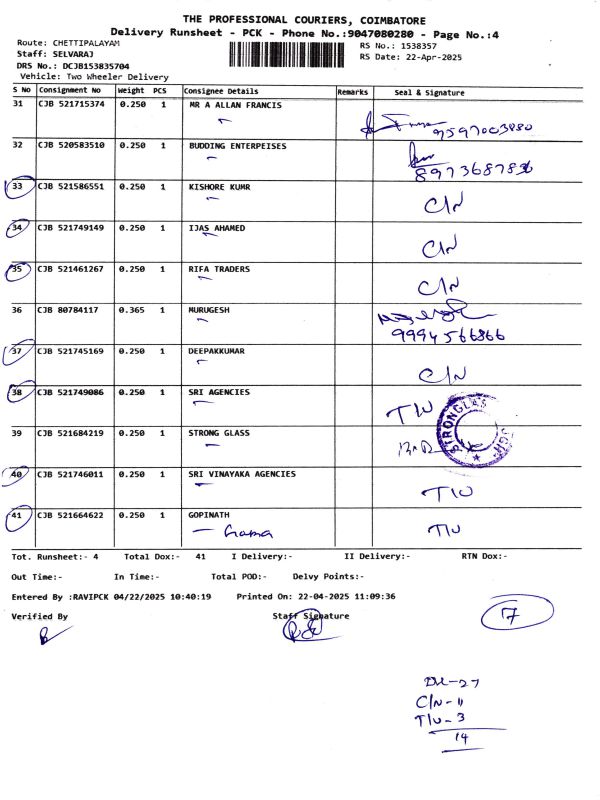 THE PROFESSIONAL COURIERS, COIMBATORE
Delivery Runsheet - PCK - Phone No.:9047080280 - Page No.:4
Route: CHETTIPALAYAM
Staff: SELVARAJ
DRS No.: DCJB153835704
Vehicle: Two Wheeler Delivery
RS No.: 1538357
RS Date: 22-Apr-2025
S No Consignment No Weight PCS Consignee Details Remarks Seal & Signature
31 CJB 521715374 0.250 1 MR A ALLAN FRANCIS 9597003880
32 CJB 520583510 0.250 1 BUDDING ENTERPEISES 8973687836
33 CJB 521586551 0.250 1 KISHORE KUMR C/N
34 CJB 521749149 0.250 1 IJAS AHAMED C/N
35 CJB 521461267 0.250 1 RIFA TRADERS C/N
36 CJB 80784117 0.365 1 MURUGESH 9994566866
37 CJB 521745169 0.250 1 DEEPAKKUMAR C/N
38 CJB 521749086 0.250 1 SRI AGENCIES T/U
39 CJB 521684219 0.250 1 STRONG GLASS
40 CJB 521746011 0.250 1 SRI VINAYAKA AGENCIES T/U
41 CJB 521664622 0.250 1 GOPINATH T/U
Tot. Runsheet:- 4 Total Dox:- 41 I Delivery:- II Delivery:- RTN Dox:-
Out Time:- In Time:- Total POD:- Delvy Points:-
Entered By :RAVIPCK 04/22/2025 10:40:19 Printed On: 22-04-2025 11:09:36
Verified By Staff Signature
17
Del-27
C/N-11
T/U-3
14